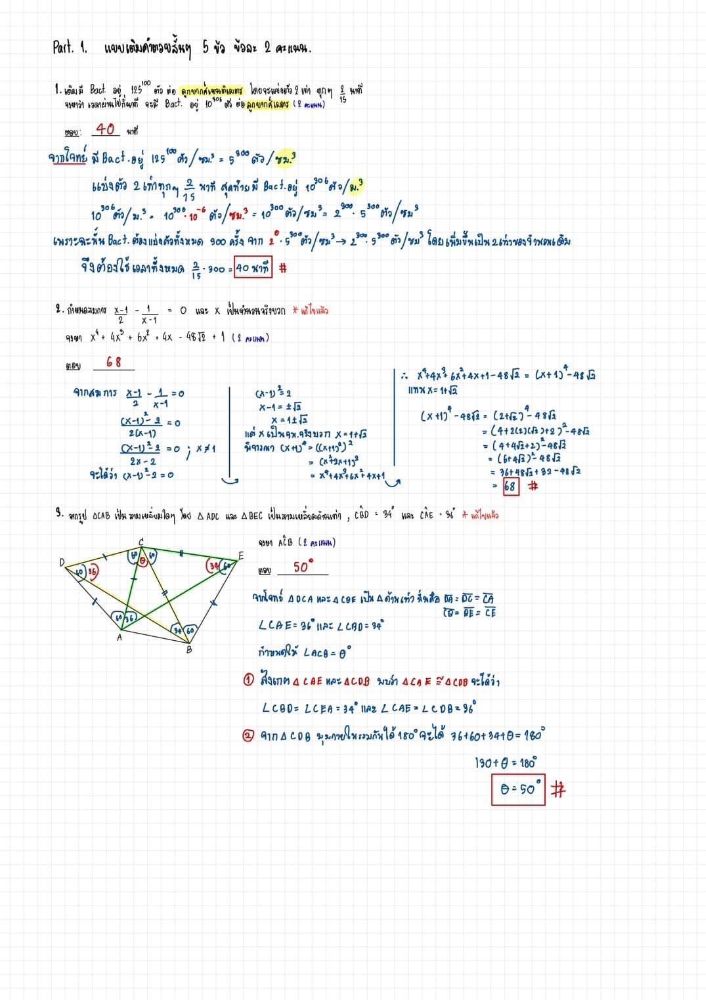 Part. 1. แบบเติมคำตอบสั้นๆ 5 ข้อ ข้อละ 2 คะแนน.
1. เดิมมี Bact. อยู่ 125^100 ตัว ต่อ ลูกบาศก์เซนติเมตร โดยจะแบ่งตัว 2 เท่า ทุกๆ 2/15 นาที
จงหาว่า เวลาผ่านไปกี่นาที จะมี Bact. อยู่ 10^306 ตัว ต่อลูกบาศก์เมตร (2 คะแนน)
ตอบ: 40 นาที
จากโจทย์ มี Bact. อยู่ 125^100 ตัว/ซม.³ = 5^300 ตัว/ซม.³
แบ่งตัว 2 เท่าทุกๆ 2/15 นาที สุดท้ายมี Bact. อยู่ 10^306 ตัว/ม.³
10^306 ตัว/ม.³ = 10^306 · 10^-6 ตัว/ซม.³ = 10^300 ตัว/ซม³ = 2^300 · 5^300 ตัว/ซม³
เพราะฉะนั้น Bact. ต้องแบ่งตัวทั้งหมด 300 ครั้ง จาก 2^0 · 5^300 ตัว/ซม³ → 2^300 · 5^300 ตัว/ซม³ โดยเพิ่มขึ้นเป็น 2 เท่าของจำนวนเดิม
จึงต้องใช้เวลาทั้งหมด 2/15 · 300 = 40 นาที #
2. กำหนดสมการ x-1/2 - 1/x-1 = 0 และ x เป็นจำนวนจริงบวก * แก้ไขแล้ว
จงหา x⁴ + 4x³ + 6x² + 4x - 48√2 + 1 (2 คะแนน)
ตอบ 68
จากสมการ x-1/2 - 1/x-1 = 0
(x-1)²-2/2(x-1) = 0
(x-1)²-2/2x-2 = 0 ; x≠1
จะได้ว่า (x-1)²-2 = 0
(x-1)² = 2
x-1 = ±√2
x = 1±√2
แต่ x เป็นจน.จริงบวก x = 1+√2
พิจารณา (x+1)⁴ = ((x+1)²)²
= (x²+2x+1)²
= x⁴+4x³+6x²+4x+1
∴ x⁴+4x³+6x²+4x+1-48√2 = (x+1)⁴-48√2
แทน x = 1+√2
(x+1)⁴-48√2 = (2+√2)⁴-48√2
= (4+2(2)(√2)+2)²-48√2
= (4+4√2+2)²-48√2
= (6+4√2)²-48√2
= 36+48√2+32-48√2
= 68 #
3. จากรูป △CAB เป็นสามเหลี่ยมใดๆ โดย △ADC และ △BEC เป็นสามเหลี่ยมด้านเท่า , CB̂D = 34° และ CÂE = 36° * แก้ไขแล้ว
จงหา AĈB (2 คะแนน)
ตอบ 50°
C
60 θ 60
D 60 36
34 60 E
60 36
A
34 60
B
จากโจทย์ △DCA และ △CBE เป็น △ด้านเท่า นั่นคือ DA = DC = CA
CB = BE = CE
∠CAE = 36° และ ∠CBD = 34°
กำหนดให้ ∠ACB = θ°
① สังเกต △CAE และ △CDB พบว่า △CAE ≅ △CDB จะได้ว่า
∠CBD = ∠CEA = 34° และ ∠CAE = ∠CDB = 36°
② จาก △CDB มุมภายในรวมกันได้ 180° จะได้ 36+60+34+θ = 180°
130+θ = 180°
θ = 50° #